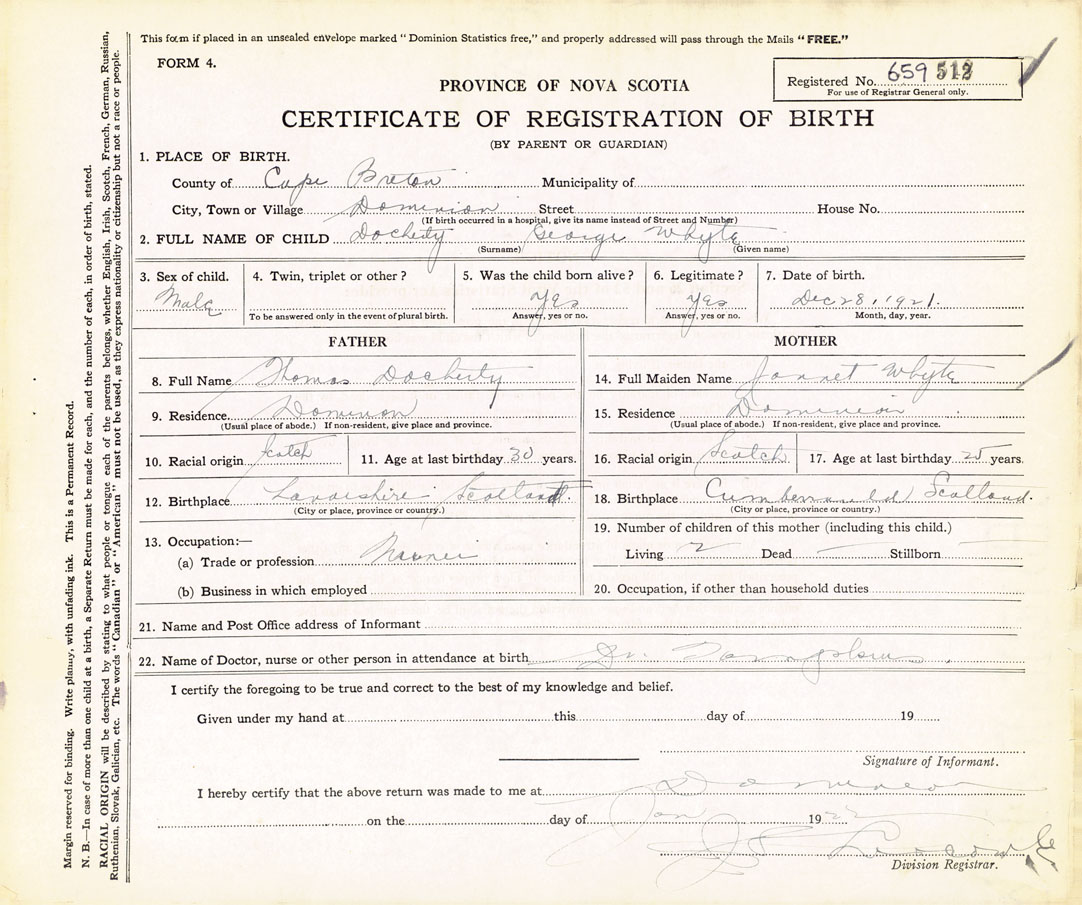 This form if placed in an unsealed envelope marked "Dominion Statistics free," and properly addressed will pass through the Mails "FREE."
FORM 4.
Registered No. 659 513
For use of Registrar General only.
PROVINCE OF NOVA SCOTIA
CERTIFICATE OF REGISTRATION OF BIRTH
(BY PARENT OR GUARDIAN)
1. PLACE OF BIRTH.
County of Cape Breton Municipality of
City, Town or Village Dominion Street House No.
(If birth occurred in a hospital, give its name instead of Street and Number)
2. FULL NAME OF CHILD Docherty George Whyte
(Surname) (Given name)
3. Sex of child. 4. Twin, triplet or other? 5. Was the child born alive? 6. Legitimate? 7. Date of birth.
Male Yes Yes Dec 28, 1921.
To be answered only in the event of plural birth. Answer, yes or no. Answer, yes or no. Month, day, year.
FATHER
8. Full Name Thomas Docherty
9. Residence Dominion
(Usual place of abode.) If non-resident, give place and province.
10. Racial origin Scotch 11. Age at last birthday 30 years.
12. Birthplace Scotland.
(City or place, province or country.)
13. Occupation:—
(a) Trade or profession
(b) Business in which employed
MOTHER
14. Full Maiden Name Jannet Whyte
15. Residence Dominion
(Usual place of abode.) If non-resident, give place and province.
16. Racial origin Scotch 17. Age at last birthday 25 years.
18. Birthplace Scotland.
(City or place, province or country.)
19. Number of children of this mother (including this child.)
Living 2 Dead — Stillborn —
20. Occupation, if other than household duties
21. Name and Post Office address of Informant
22. Name of Doctor, nurse or other person in attendance at birth Dr.
I certify the foregoing to be true and correct to the best of my knowledge and belief.
Given under my hand at this day of 19
Signature of Informant.
I hereby certify that the above return was made to me at Dominion
on the day of Jan 1922
Division Registrar.
Margin reserved for binding. Write plainly, with unfading ink. This is a Permanent Record.
N. B.—In case of more than one child at a birth, a Separate Return must be made for each, and the number of each, in order of birth, stated.
RACIAL ORIGIN will be described by stating to what people or tongue each of the parents belongs, whether English, Irish, Scotch, French, German, Russian,
Ruthenian, Slovak, Galician, etc. The words "Canadian" or "American" must not be used, as they express nationality or citizenship but not a race or people.